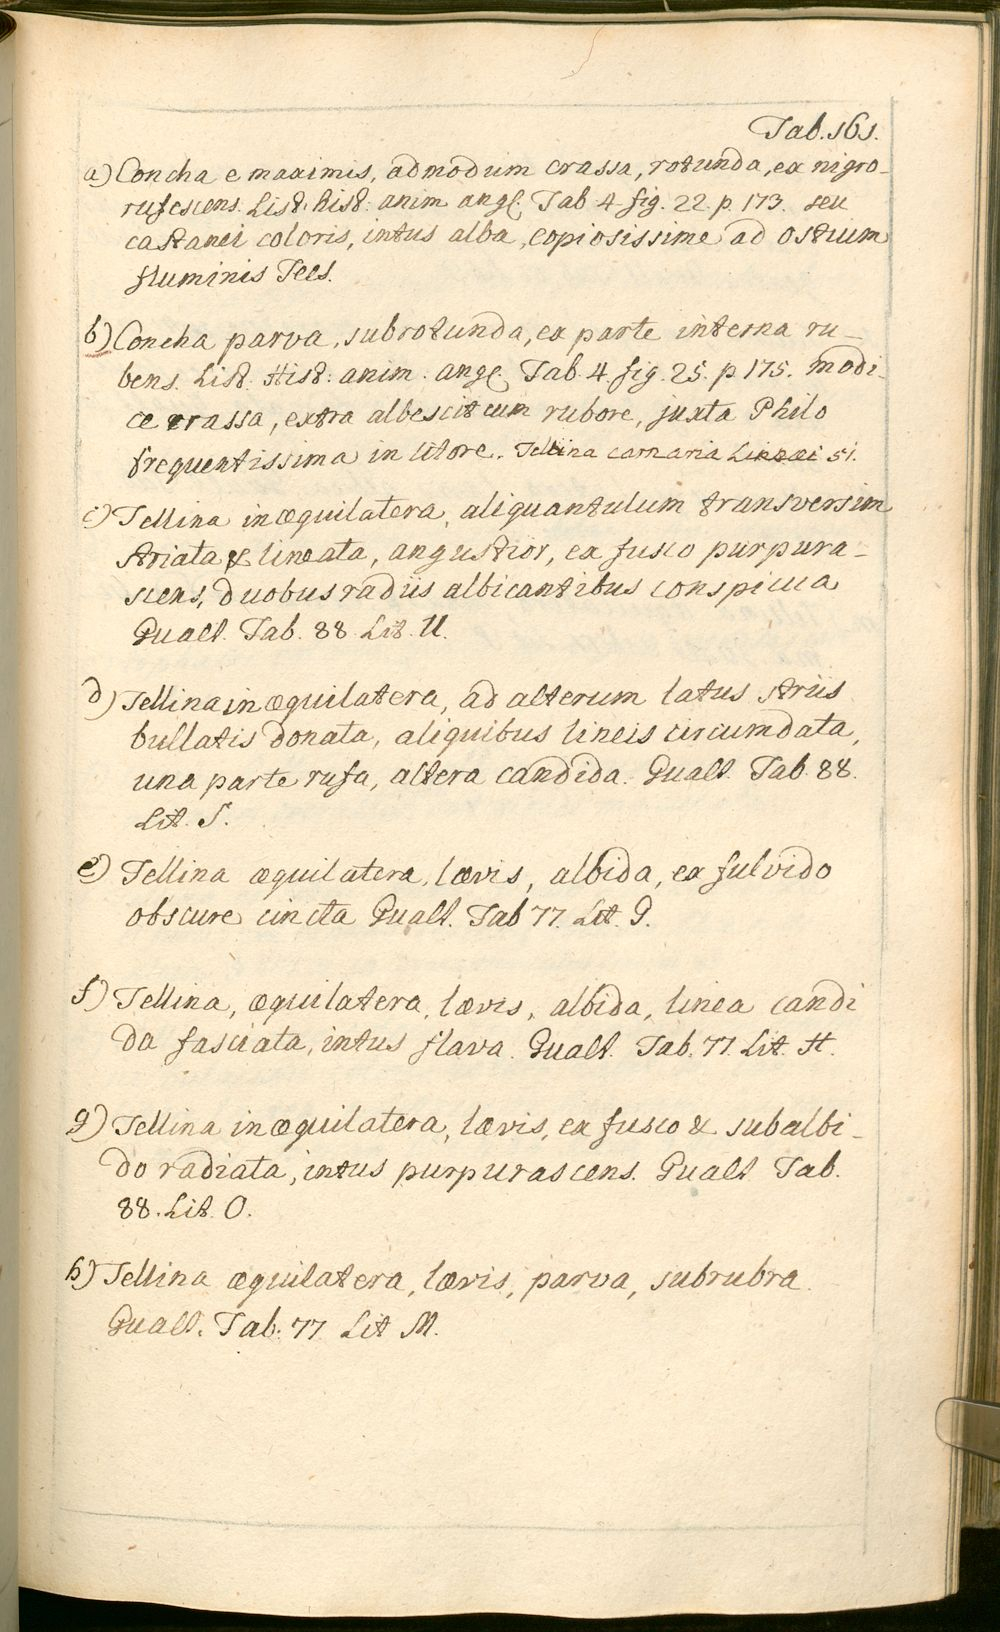 Tab. 161.
a) Concha e maximis, admodum crassa, rotunda, ex nigro-
rufescens. List. hist: anim angl. Tab 4 fig. 22. p. 173. seu
castanei coloris, intus alba, copiosissime ad ostium
fluminis Tees.
b) Concha parva, subrotunda, ex parte interna ru-
bens. List: Hist: anim. angl. Tab. 4. fig. 25. p 175. modi-
ce crassa, extra albescit cum rubore, juxta Philo
frequentissima in litore. Tellina carnaria Linnæi 51.
c) Tellina inæquilatera, aliquantulum transversim
striata & lineata, angustior, ex fusco purpura-
scens, duobus radiis albicantibus conspicua
Gualt. Tab. 88. Lit. U.
d) Tellina inæquilatera, ad alterum latus striis
bullatis donata, aliquibus lineis circumdata,
una parte rufa, altera candida. Gualt. Tab. 88.
Lit. S.
e) Tellina æquilatera, lævis, albida, ex fulvido
obscure cincta Gualt. Tab 77. Lit. G.
f) Tellina, æquilatera, lævis, albida, linea candi
da fasciata, intus flava. Gualt. Tab. 77. Lit. H.
g) Tellina inæquilatera, lævis, ex fusco & subalbi-
do radiata, intus purpurascens. Gualt Tab.
88. Lit. O.
h) Tellina æquilatera, lævis, parva, subrubra.
Gualt. Tab. 77 Lit M.